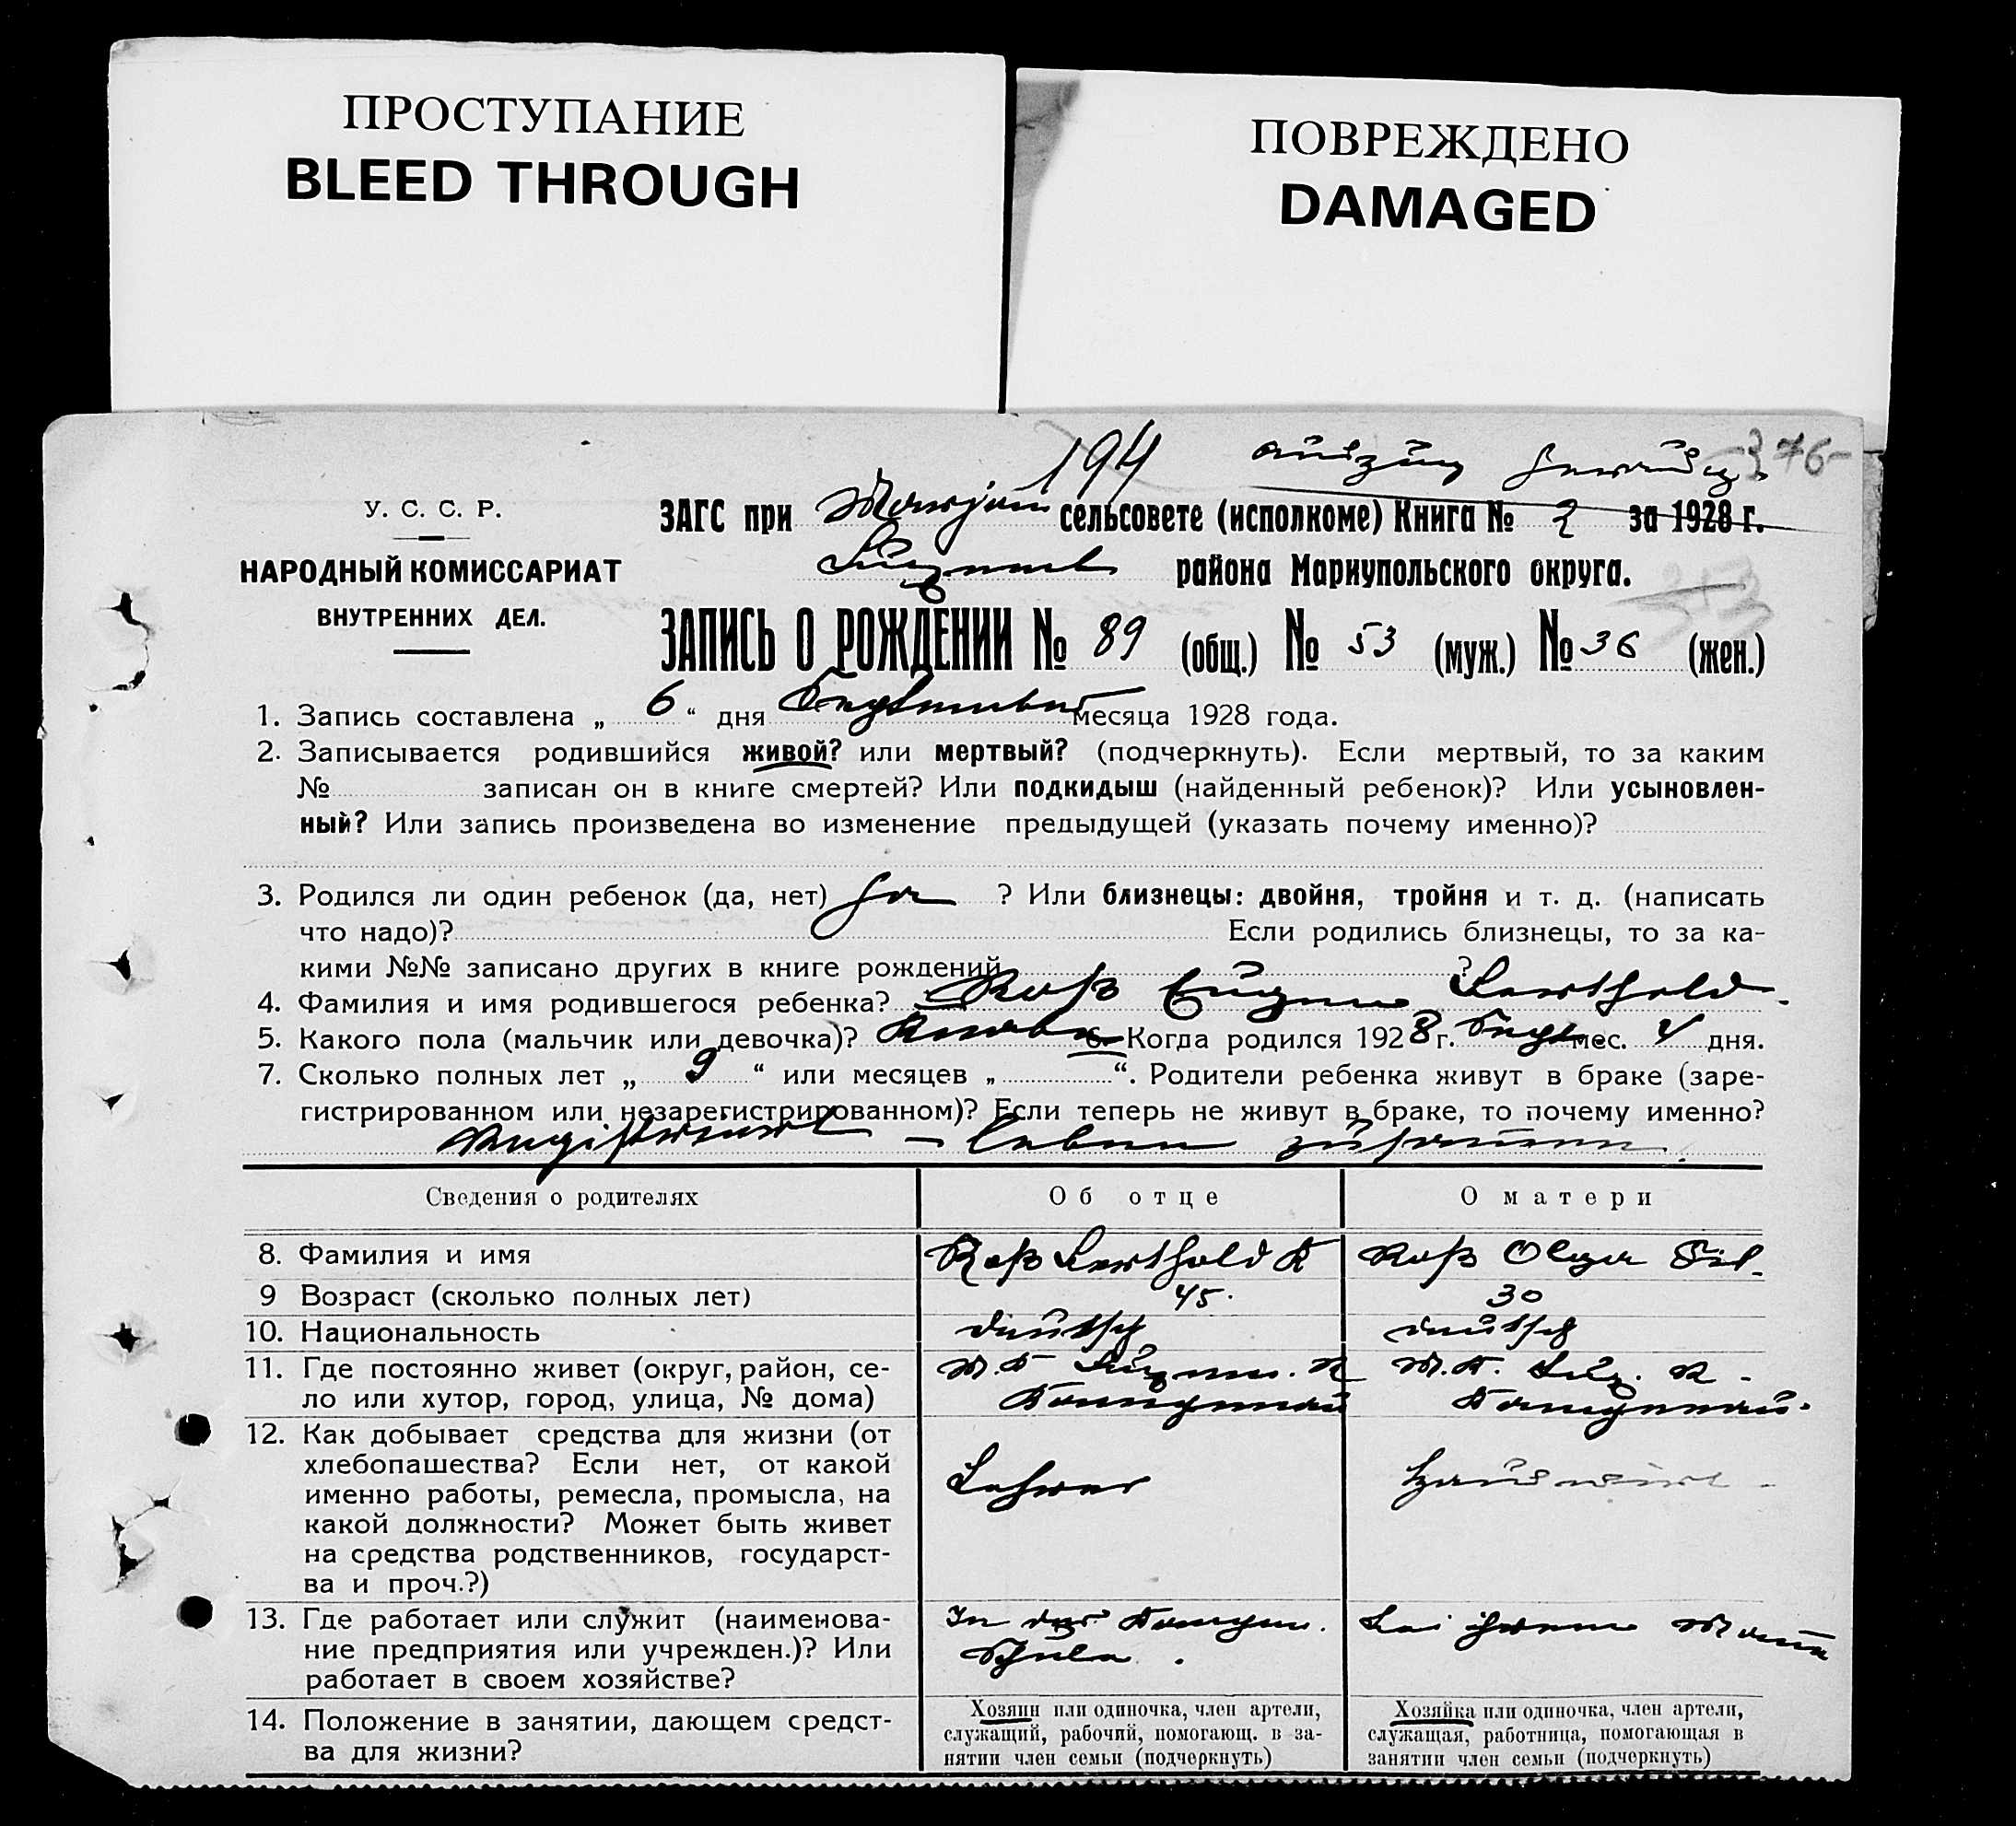 ПРОСТУПАНИЕ
BLEED THROUGH
ПОВРЕЖДЕНО
DAMAGED
194 Auszug 376
У. С. С. Р.
НАРОДНЫЙ КОМИССАРИАТ
ВНУТРЕННИХ ДЕЛ.
ЗАГС при сельсовете (исполкоме) Книга № 2 за 1928 г.
района Мариупольского округа.
353
ЗАПИСЬ О РОЖДЕНИИ № 89 (общ.) № 53 (муж.) № 36 (жен.)
1. Запись составлена „ 6 “ дня September месяца 1928 года.
2. Записывается родившийся живой? или мертвый? (подчеркнуть). Если мертвый, то за каким
№ записан он в книге смертей? Или подкидыш (найденный ребенок)? Или усыновлен-
ный? Или запись произведена во изменение предыдущей (указать почему именно)?
3. Родился ли один ребенок (да, нет) Ja ? Или близнецы: двойня, тройня и т. д. (написать
что надо)? Если родились близнецы, то за ка-
кими №№ записано других в книге рождений ?
4. Фамилия и имя родившегося ребенка? Roß Eugen Berthold.
5. Какого пола (мальчик или девочка)? Knabe 6. Когда родился 1928 г. Sept. мес. 4 дня.
7. Сколько полных лет „ 9 “ или месяцев „ “. Родители ребенка живут в браке (заре-
гистрированном или незарегистрированном)? Если теперь не живут в браке, то почему именно?
Registriert – leben zusammen.
Сведения о родителях Об отце О матери
8. Фамилия и имя Roß Berthold K Roß Olga
9 Возраст (сколько полных лет) 45. 30
10. Национальность deutsch deutsch
11. Где постоянно живет (округ, район, се- M. K. R M. K. R.
ло или хутор, город, улица, № дома)
12. Как добывает средства для жизни (от
хлебопашества? Если нет, от какой
именно работы, ремесла, промысла, на Lehrer Hauswirt.
какой должности? Может быть живет
на средства родственников, государст-
ва и проч.?)
13. Где работает или служит (наименова- In der Bei ihrem Mann
ние предприятия или учрежден.)? Или Schule.
работает в своем хозяйстве?
14. Положение в занятии, дающем средст-
ва для жизни?
Хозяин или одиночка, член артели,
служащий, рабочий, помогающ. в за-
нятии член семьи (подчеркнуть)
Хозяйка или одиночка, член артели,
служащая, работница, помогающая в
занятии член семьи (подчеркнуть)